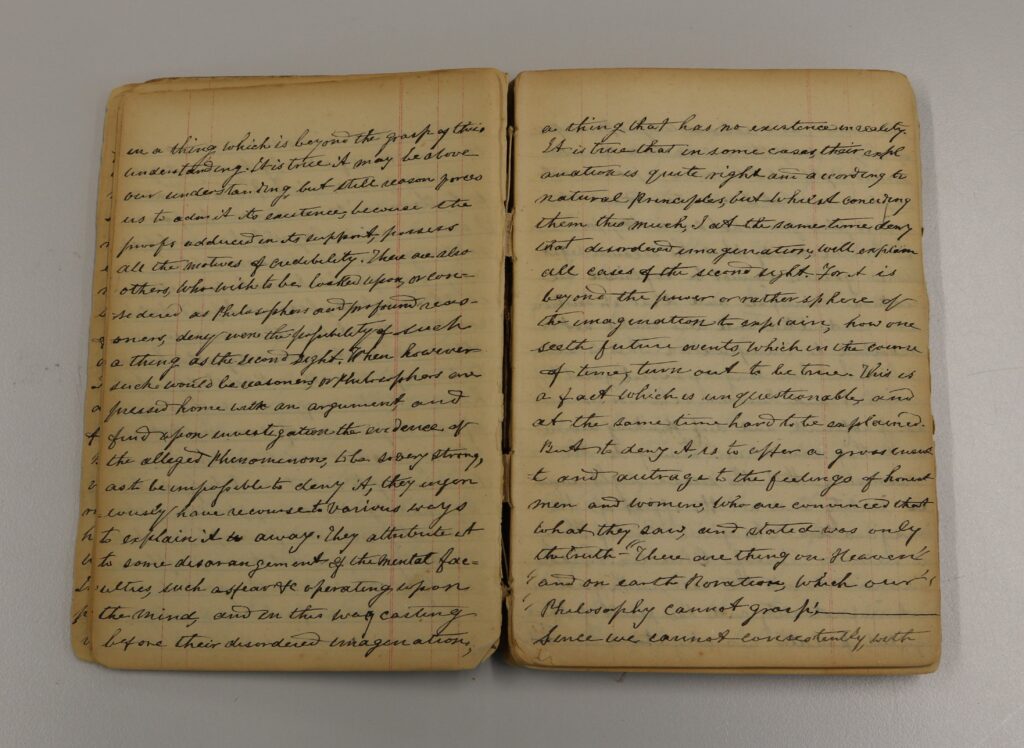 in a thing which is beyond the grasp of their
understanding. It is true it may be above
our understanding, but still reason forces
us to admit its existence, because the
proofs adduced in its support, possess
all the motives of credibility. There are also
others, who wish to be looked upon, or con-
sidered as Philosophers and profound reas-
oners, deny even the possibility of such
a thing as the second sight. When however
such would be reasoners or Philosophers are
pressed home with an argument and
find upon investigation the evidence of
the alleged Phenomenon, to be so very strong,
as to be impossible to deny it, they ingen
iously have recourse to various ways
to explain it away. They attribute it
to some disarangement of the mental fac-
ulties, such as fear &c operating upon
the mind, and in this way casting
before their disordered imagination,
a thing that has no existence in reality.
It is true that in some cases their expl
anation is quite right and according to
natural Principles, but whilst conceding
them this much, I at the same time deny
that disordered imagination, will explain
all cases of the second sight. For it is
beyond the power or rather sphere of
the imagination to explain, how one
seeth future events, which in the course
of time, turn out to be true. This is
a fact which is unquestionable, and
at the same time hard to be explained.
But to deny it is to offer a gross insul
t and outrage to the feelings of honest
men and women, who are convinced that
what they saw, and stated was only
the truth - "There are things in Heaven"
"and on earth Horation, which our"
"Philosophy cannot grasp."
Since we cannot consistently, with